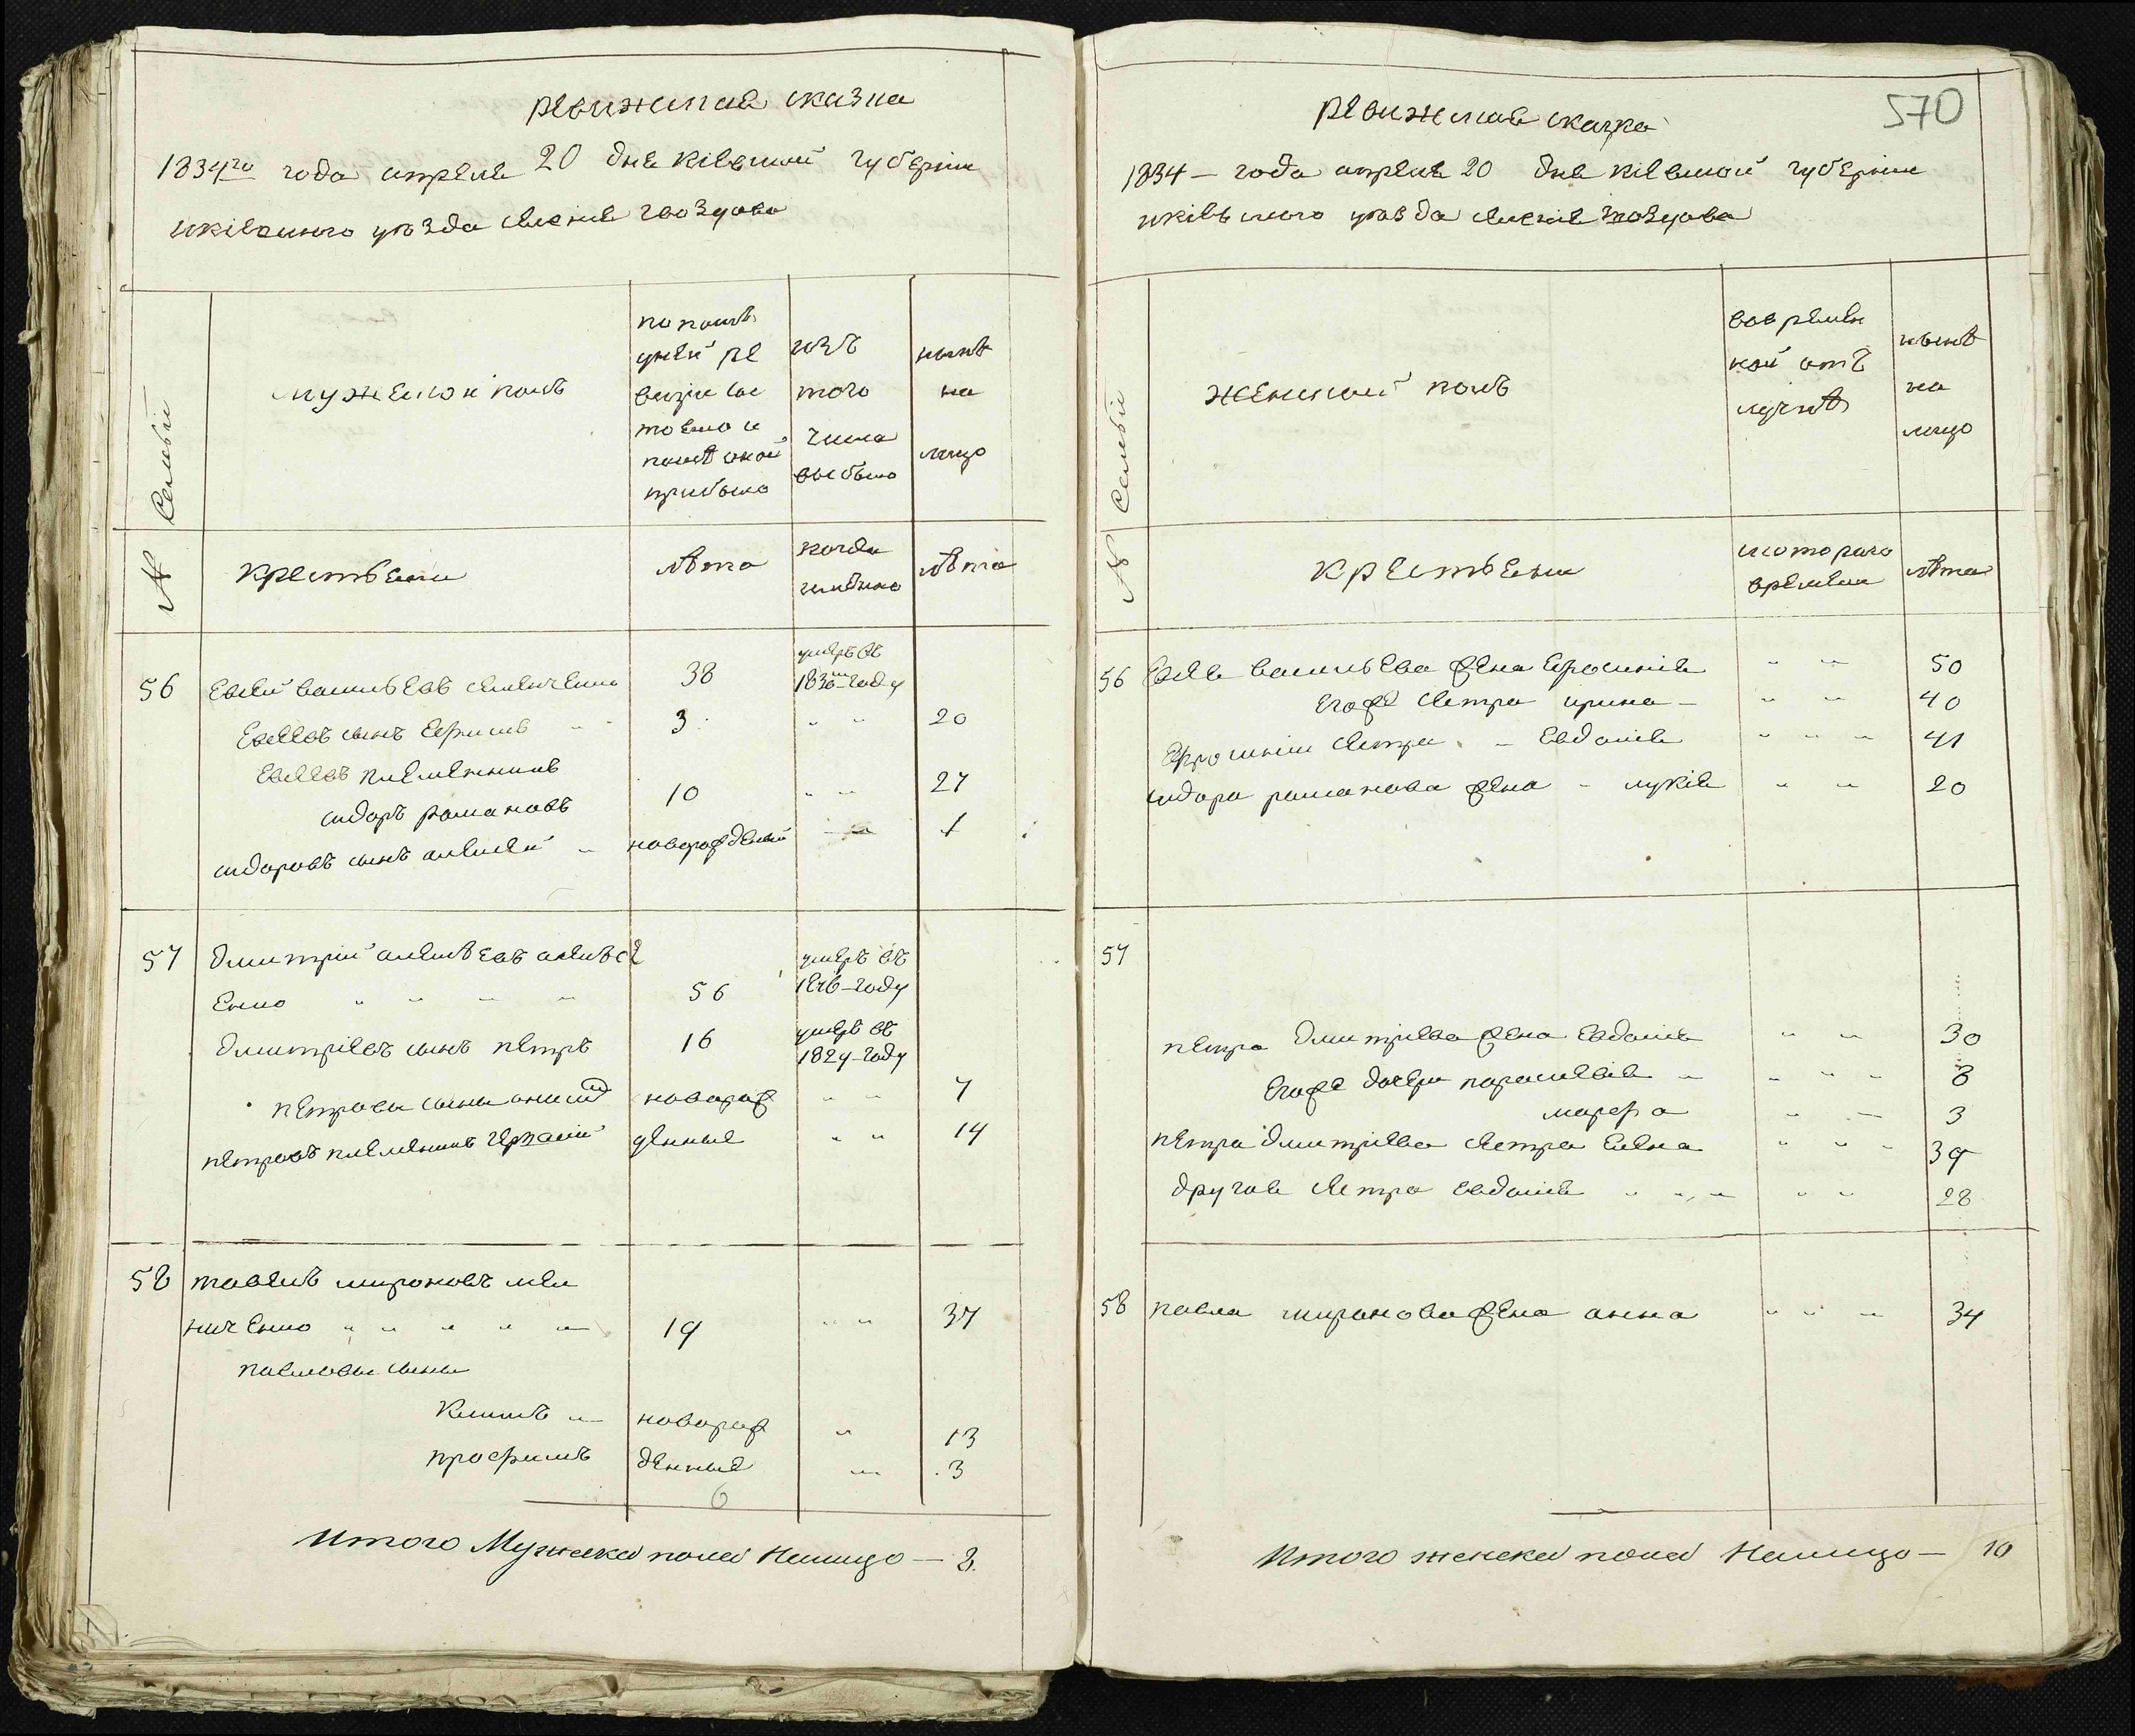 ревижская сказка
1834го года апреля 20 дня кіевской губерніи
икіевского уѣзда селеніе гвоздова
№ Семьӥ
мужеской полъ
по послѣ
дней ре
визіи со
тояло и
послѣ оной
прибыло
изъ
того
числа
выбыло
нынѣ
на
лицо
крестьяни
лѣта
когда
имянно
лѣта
56 Евсей васильевъ
38
умеръ въ
1830м году
Евсеевъ сынъ Ефимъ 3 " " 20
Евсеевъ племянникъ
сидоръ романовъ 10 " " 27
сидоровъ сынъ алексей " новорожденый 1
57 дмитрій алексѣевъ алексѣ
енко " " " " 56
умеръ въ
1826 году
дмитріевъ сынъ петръ 16
умеръ въ
1824 году
петровы сыны новорож " " 7
петровъ племяникъ денные " " 14
58 павелъ мироновъ
ниченко " " " " 19 " " 37
павловы сыны
Климъ " новорож " 13
трофимъ денные " 3
6
Итого Мужеска пола Налицо — 8.
570
ревижская сказка
1834 — года апреля 20 дня кіевской губерніи
икіевьского уѣзда селеніе гвоздова
№ Семьӥ
женской полъ
вовремян
ной отъ
лучкѣ
нынѣ
на
лицо
крестьяни
скоторого
времени
лѣта
56 Евсея васильева жена Ефросинія " " 50
Егоже сестра ирина — " " 40
Ефросиніи сестра " Евдокія " " " 41
сидора романова жена " лукія " " 20
57
петра дмитріева жена Евдокія " " 30
Егоже дочери параскевія " " " " 8
марфа " " 3
петра дмитріева сестра Елена " " " 39
другая сестра Евдокія " " " " " 28
58 павла миронова жена анна " " " 34
Итого женска пола Налицо — 10